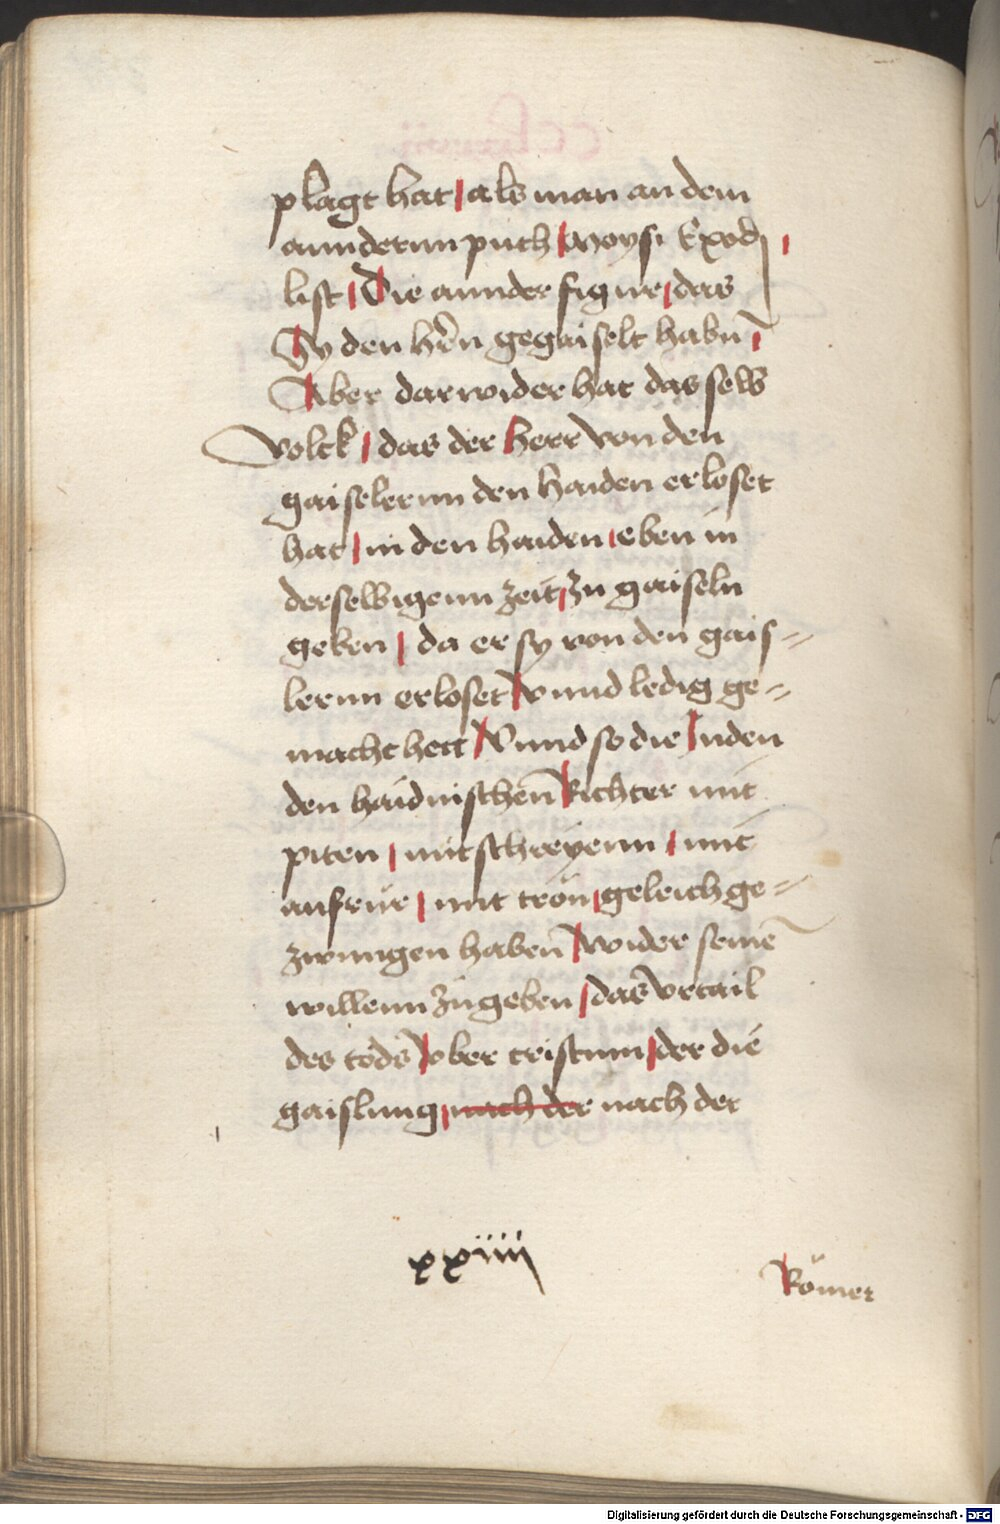 plagt hat | als man an dem
anndernn puch | Moysi Exodj |
list | Die annder figur | das
Sy den hern̄ gegaiselt habn̄ |
Aber darwider hat das selb
volck | das der herr von den
gaiselernn den haiden erloset
hat | in den haiden | eben in
derselbigenn zeit | zu gaiseln
geben | da er sy von den gais=
lernn erloset | vnnd ledig ge=
macht hett | Vnnd so die Juden
den haidnischen̄ Richter mit
piten | mit schreyenn | mit
aufrur | mit tron | geleich ge=
zwungen haben̄ | wider seinē
willenn zu geben | das vrtail
des tods | vber cristum | der die
gaislung | nach der nach der
xxiiii
Römer
Digitalisierung gefördert durch die Deutsche Forschungsgemeinschaft - DFG